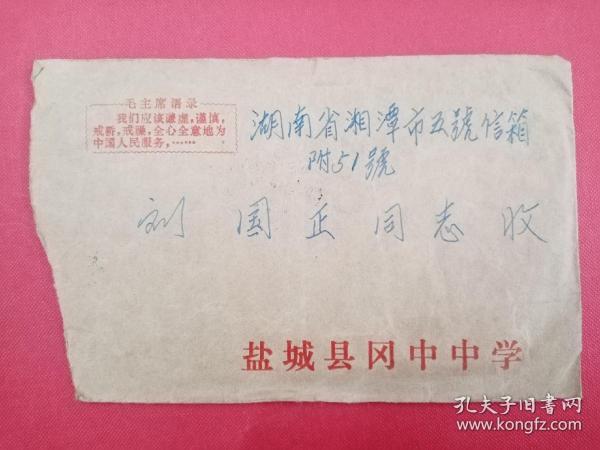 毛主席语录
我们应该谦虚，谨慎，
戒骄，戒躁，全心全意地为
中国人民服务，……
湖南省湘潭市五號信箱
附51號
刘国正同志收
盐城县冈中中学
孔夫子旧书网
www.kongfz.com